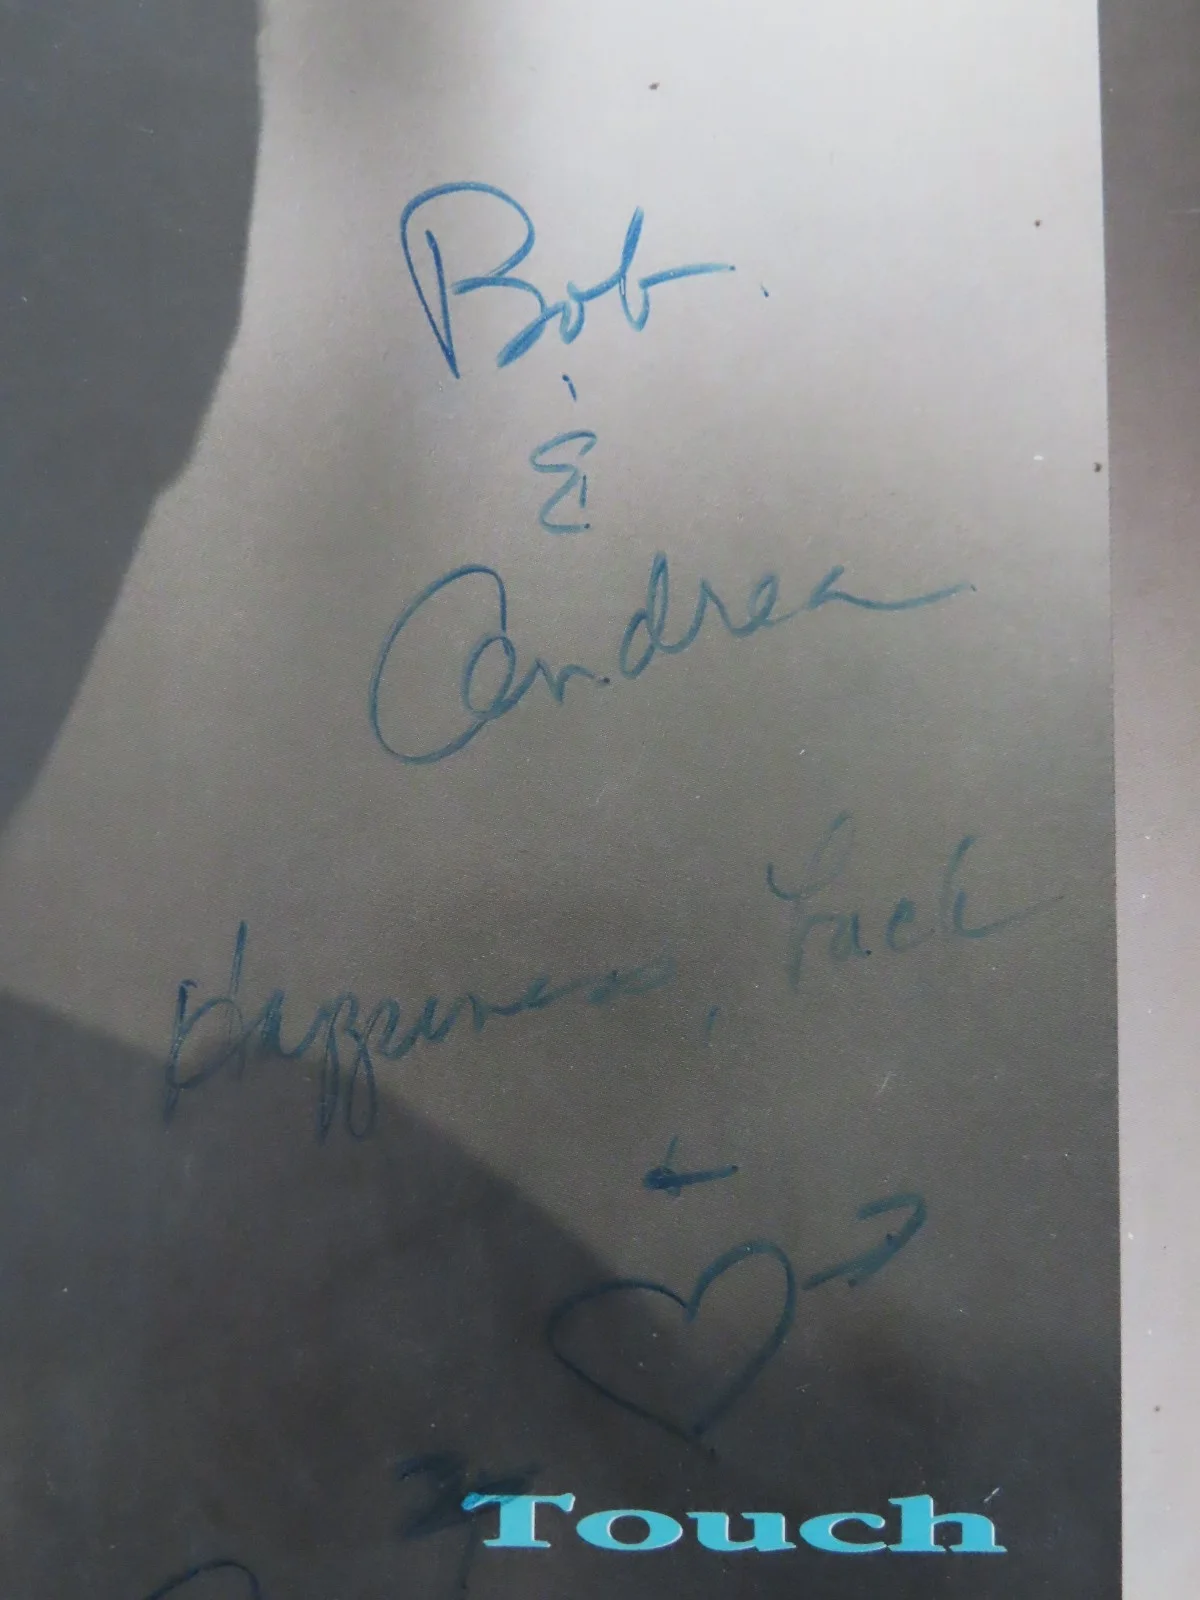 Bob
&
Andrea
Happiness, Luck
&
Touch